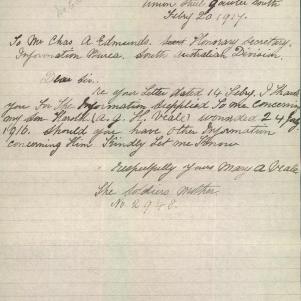 Union Street Gawler South
Feby 20 1917.
To Mr Chas A Edmunds. Honorary Secretary.
Information Bureau. South Australian Division.
Dear Sir.
re your Letter dated 14 Feby. I thank
you For The Information Supplied To me concerning
my son Keneth (A. G. K. Veale) wounded 24 July
1916. Should you have other Information
concerning Him Kindly Let me Know
Respectfully yours Mary A Veale
The Soldiers Mother.
No. 2948.